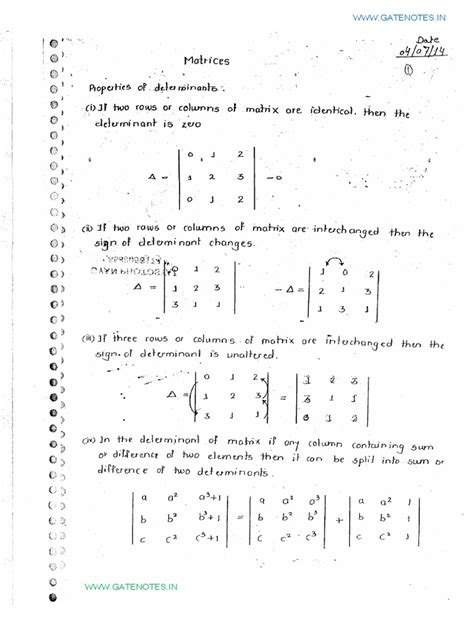 WWW.GATENOTES.IN
Date
04/07/14
①
Matrices
Properties of determinants:
(i) If two rows or columns of matrix are identical, then the
determinant is zero
Δ = | 0 1 2 |
| 1 2 3 | = 0
| 0 1 2 |
(ii) If two rows or columns of matrix are interchanged then the
sign of determinant changes.
Δ = | 0 1 2 | -Δ = | 1 0 2 |
| 1 2 3 | | 2 1 3 |
| 3 1 1 | | 1 3 1 |
(iii) If three rows or columns of matrix are interchanged then the
sign of determinant is unaltered.
Δ = | 0 1 2 | = | 1 2 3 |
| 1 2 3 | | 3 1 1 |
| 3 1 1 | | 0 1 2 |
(iv) In the determinant of matrix if any column containing sum
or difference of two elements then it can be split into sum or
difference of two determinants.
| a a² a³+1 | = | a a² a³ | + | a a² 1 |
| b b² b³+1 | | b b² b³ | | b b² 1 |
| c c² c³+1 | | c c² c³ | | c c² 1 |
WWW.GATENOTES.IN